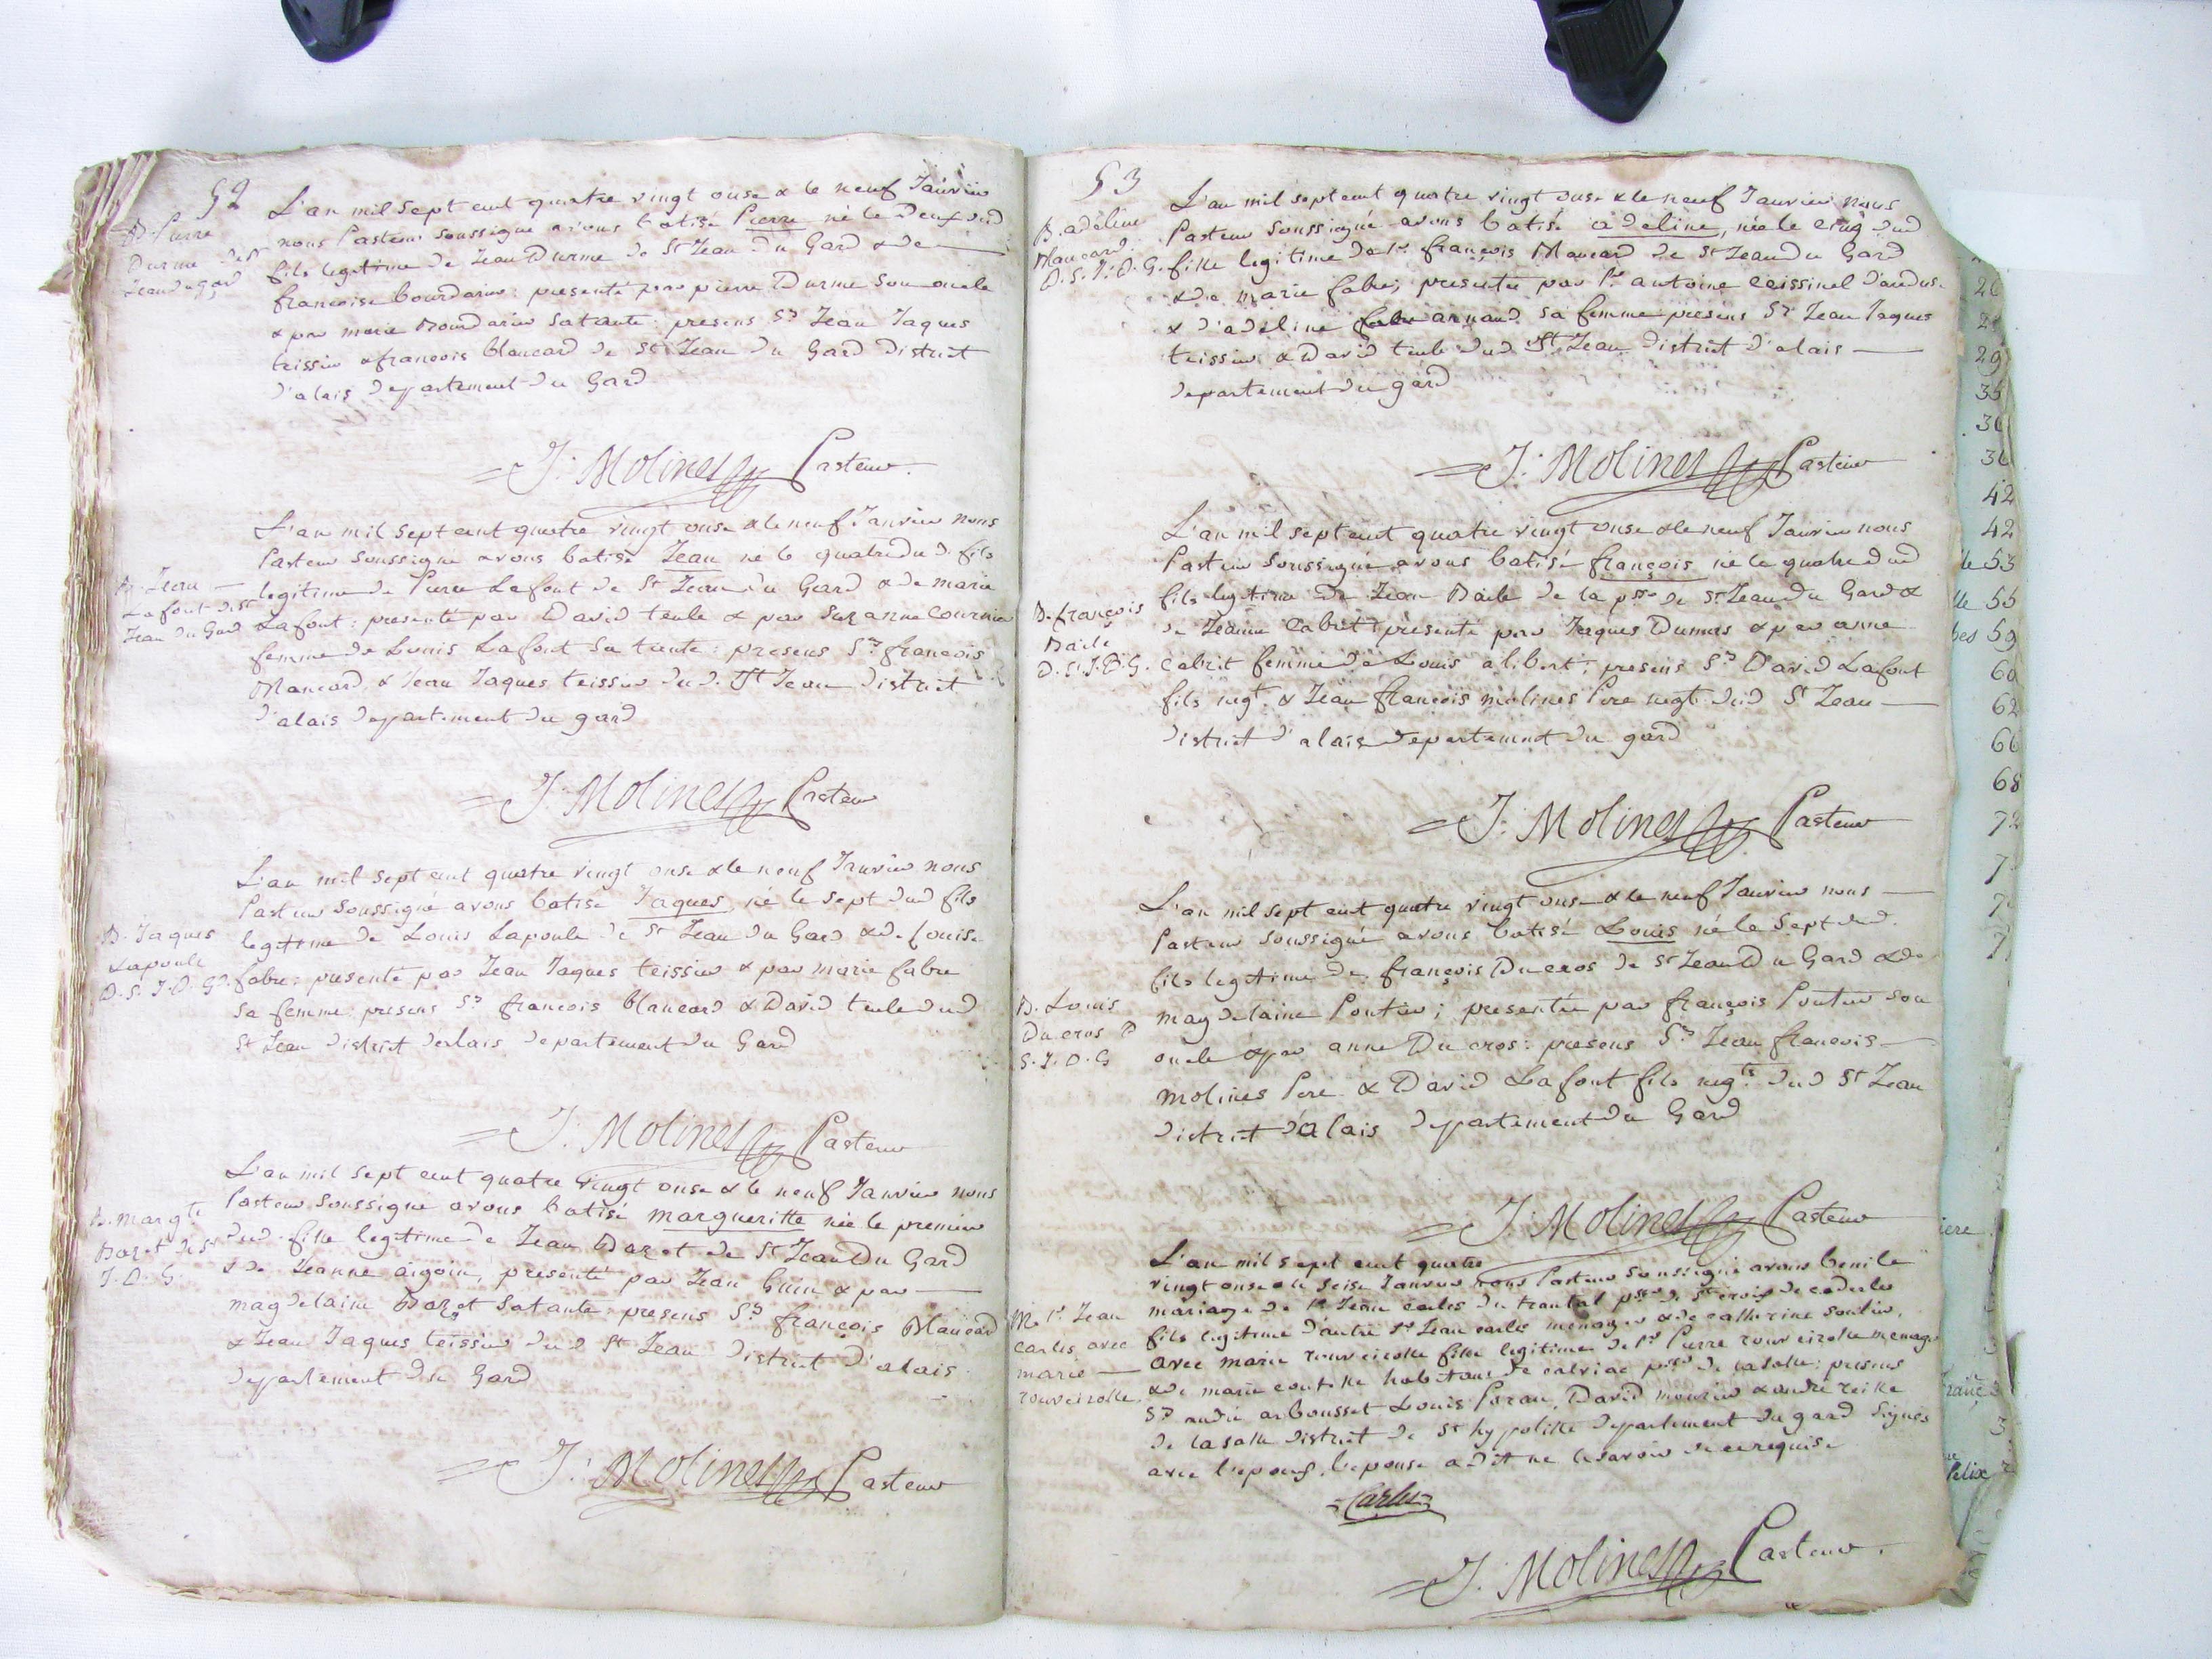 52
B. Pierre
Durme de St
Jean du gard
L'an mil sept cent quatre vingt onse & le neuf Janvier
nous Pasteur soussigné avons batisé Pierre né le deux dud
fils legitime de Jean Durme de St Jean du Gard & de
francoise bourdarier: presenté par pierre Durme son oncle
& par marie Bourdarier sa tante: presens Srs Jean Jaques
teissier & francois blancard de St Jean du Gard District
d'alais departement du Gard
J: Molines Pasteur.
B. Jean
Lafont de St
Jean du Gard
L'an mil sept cent quatre vingt onse & le neuf Janvier nous
Pasteur soussigné avons batisé Jean né le quatre du d. fils
legitime de Pierre Lafont de St Jean du Gard & de marie
Lafont: presenté par David teule & par Suzanne Cournier
femme de Louis Lafont sa tante: presens Srs francois
Blancard & Jean Jaques teissier dud. St Jean District
d'alais departement du gard
J: Molines Pasteur
B. Jaques
Lapoule
D. S. J. D. G.
L'an mil sept cent quatre vingt onse & le neuf Janvier nous
Pasteur soussigné avons batisé Jaques, né le sept dud fils
legitime de Louis Lapoule de St Jean du Gard & de Louise
fabre: presenté par Jean Jaques teissier & par marie fabre
sa femme: presens Srs francois blancard & David teule dud
St Jean District d'alais departement du Gard
J: Molines Pasteur
B. margte
Bazet de St
J. D. G.
L'an mil sept cent quatre vingt onse & le neuf Janvier nous
Pasteur soussigné avons batisé margueritte née le premier
dud. fille legitime de Jean Bazet de St Jean Du Gard
& de Jeanne aigoin, presenté par Jean & par
magdelaine Bazet sa tante: presens Srs françois Blancard
& Jean Jaques teissier dud St Jean District d'alais
departement du Gard
J: Molines Pasteur
53
B. adeline
Blancard
D. S. J. D. G.
L'an mil sept cent quatre vingt onse & le neuf Janvier nous
Pasteur soussigné avons batisé adeline, née le cinq dud
fille legitime de Sr françois Blancard de St Jean du Gard
& de marie fabre; presentée par Sr antoine Ceissinel d'anduse
& d'adeline arnaud sa femme presens Srs Jean Jaques
teissier & David teule dud St Jean District d'alais
departement du gard
J: Molines Pasteur
B. françois
Baile
D. S. J. D. G.
L'an mil sept cent quatre vingt onse & le neuf Janvier nous
Pasteur soussigné avons batisé françois né le quatre dud
fils legitime de Jean Baile de la psse de St Jean du Gard &
de Jeanne Cabrit: presenté par Jaques Dumas & par anne
Cabrit femme de Louis alibert; presens Srs David Lafont
fils negt. & Jean françois molines Pere negt. dud St Jean
District d'alais departement du gard
J: Molines Pasteur
B. Louis
Ducros D
S. J. D. G
L'an mil sept cent quatre vingt onse & le neuf Janvier nous
Pasteur soussigné avons batisé Louis né le sept dud.
fils legitime de françois Ducros de St Jean Du Gard & de
magdelaine Pontier; presentée par françois Pontier son
oncle & par anne Ducros: presens Srs Jean francois
molines Pere & David Lafont fils negts dud St Jean
District d'alais departement du Gard
J: Molines Pasteur
M. Sr Jean
Carles avec
marie
rouveirolle.
L'an mil sept cent quatre
vingt onse & le seise Janvier nous Pasteur soussigné avons beni le
mariage de Sr Jean carles du psse de Ste croix de caderles
fils legitime d'autre Sr Jean carles menager & de catherine soulier,
avec marie rouveirolle fille legitime de Sr Pierre rouveirolle menager
& de marie habitans de calviac psse de lasalle: presens
Srs andré arbousset Louis David & andré
de lasalle District de St hypolitte departement du gard Signés
avec l'epoux, l'epouse a dit ne le savoir de ce requise
Carles
J: Molines Pasteur.
29
35
42
42
lle 53
lle 55
bes 59
60
62
66
68
72
iere
felix